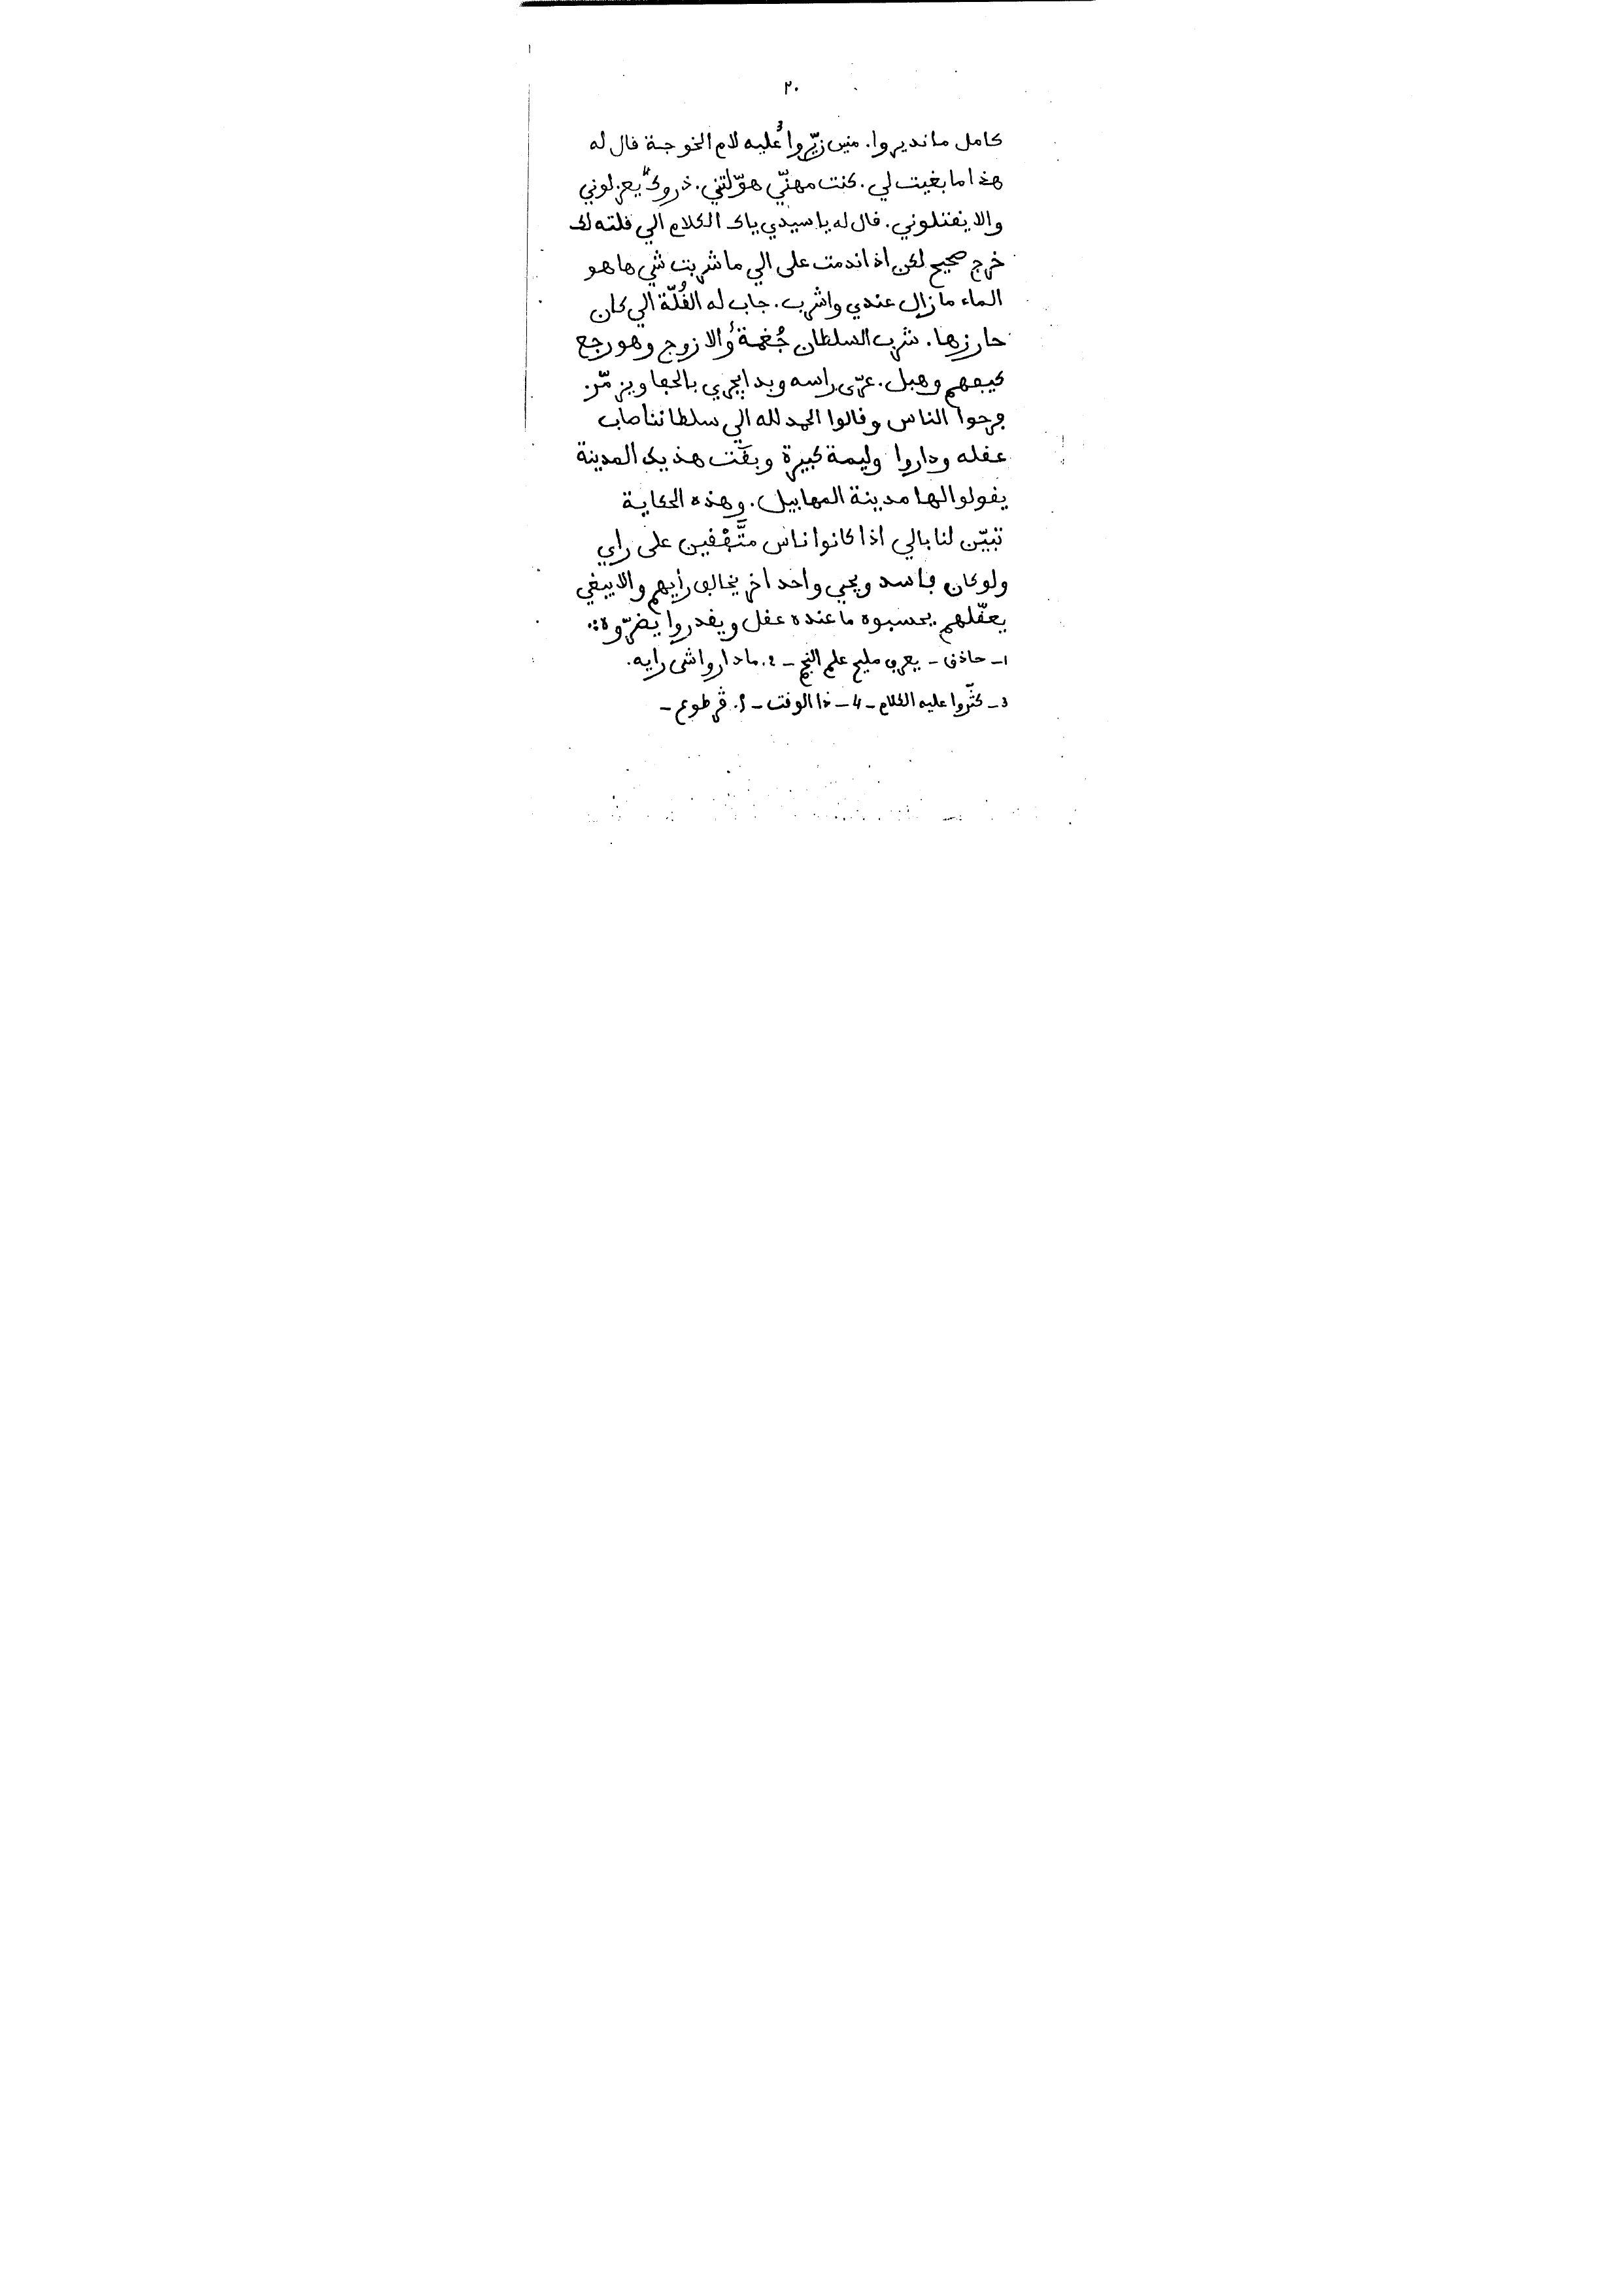 ٢٠
كامل ما نديروا. منين زيّروا3 عليه لام الخوجة قال له
هذا ما بغيت لي. كنت مهنّي هوّلتني. ذروك4 يعزلوني
والا يقتلوني. قال له يا سيدي ياك الكلام الي قلته لك
خرج صحيح لكن اذا ندمت على الي ما شربت شي ها هو
الماء ما زال عندي واشرب. جاب له القُلّة الي كان
حارزها. شرب السلطان جُغمة5 والا زوج وهو رجع
كيفهم وهبل. عرّى راسه وبدا يجري بالحفا ويزمّر.
فرحوا الناس وقالوا الحمد لله الي سلطاننا صاب
عقله وداروا وليمة كبيرة وبقَت هذيك المدينة
يقولوا لها مدينة المهابيل. وهذه الحكاية
تبيّن لنا بالي اذا كانوا ناس متَّفْقين على راي
ولو كان فاسد ويجي واحد اخر يخالف رأيهم والا يبغي
يعقّلهم يحسبوه ما عنده عقل ويقدروا يضرّوه∴
1- حاذق - يعرف مليح علم النجم - 2. ما داروا شي رايه.
3- كثّروا عليه الكلام - 4 - ذا الوقت - 5. ڤرطوع -